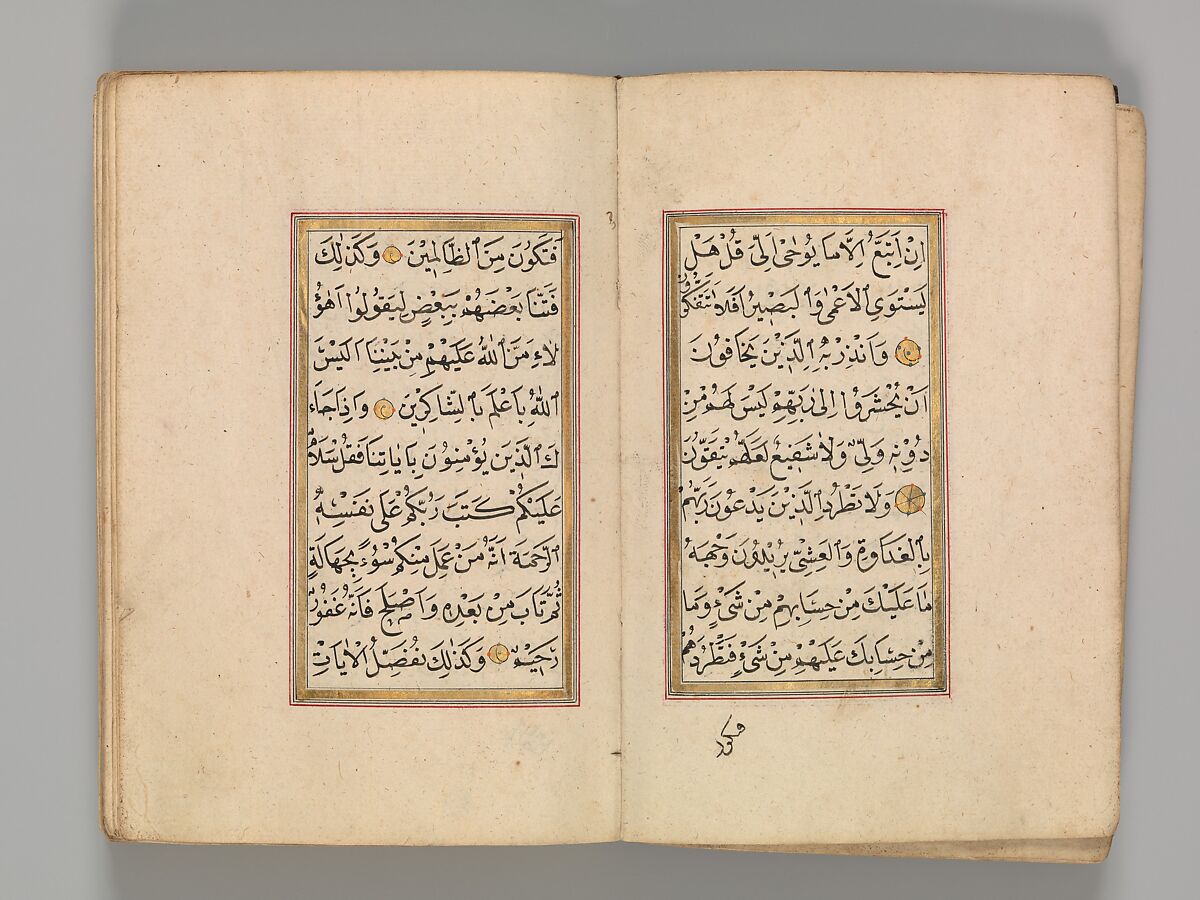 اِنْ اَتَّبِعُ اِلَّا مَا يُوحٰى اِلَىَّ قُلْ هَلْ
يَسْتَوِى الْاَعْمٰى وَالْبَصِيرُ اَفَلَا تَتَفَكَّرُونَ
وَاَنْذِرْ بِهِ الَّذِينَ يَخَافُونَ
اَنْ يُحْشَرُوا اِلٰى رَبِّهِمْ لَيْسَ لَهُمْ مِنْ
دُونِهِ وَلِىٌّ وَلَا شَفِيعٌ لَعَلَّهُمْ يَتَّقُونَ
وَلَا تَطْرُدِ الَّذِينَ يَدْعُونَ رَبَّهُمْ
بِالْغَدَاوةِ وَالْعَشِىِّ يُرِيدُونَ وَجْهَهُ
مَا عَلَيْكَ مِنْ حِسَابِهِمْ مِنْ شَىْءٍ وَمَا
مِنْ حِسَابِكَ عَلَيْهِمْ مِنْ شَىْءٍ فَتَطْرُدَهُمْ
فتكون
فَتَكُونَ مِنَ الظَّالِمِينَ وَكَذٰلِكَ
فَتَنَّا بَعْضَهُمْ بِبَعْضٍ لِيَقُولُوا اَهٰؤُ
لَاءِ مَنَّ اللّٰهُ عَلَيْهِمْ مِنْ بَيْنِنَا اَلَيْسَ
اللّٰهُ بِاَعْلَمَ بِالشَّاكِرِينَ وَاِذَا جَاءَ
كَ الَّذِينَ يُؤْمِنُونَ بِاٰيَاتِنَا فَقُلْ سَلَامٌ
عَلَيْكُمْ كَتَبَ رَبُّكُمْ عَلٰى نَفْسِهِ
الرَّحْمَةَ اَنَّهُ مَنْ عَمِلَ مِنْكُمْ سُوءً بِجَهَالَةٍ
ثُمَّ تَابَ مِنْ بَعْدِهِ وَاَصْلَحَ فَاَنَّهُ غَفُورٌ
رَحِيمٌ وَكَذٰلِكَ نُفَصِّلُ الْاٰيَاتِ